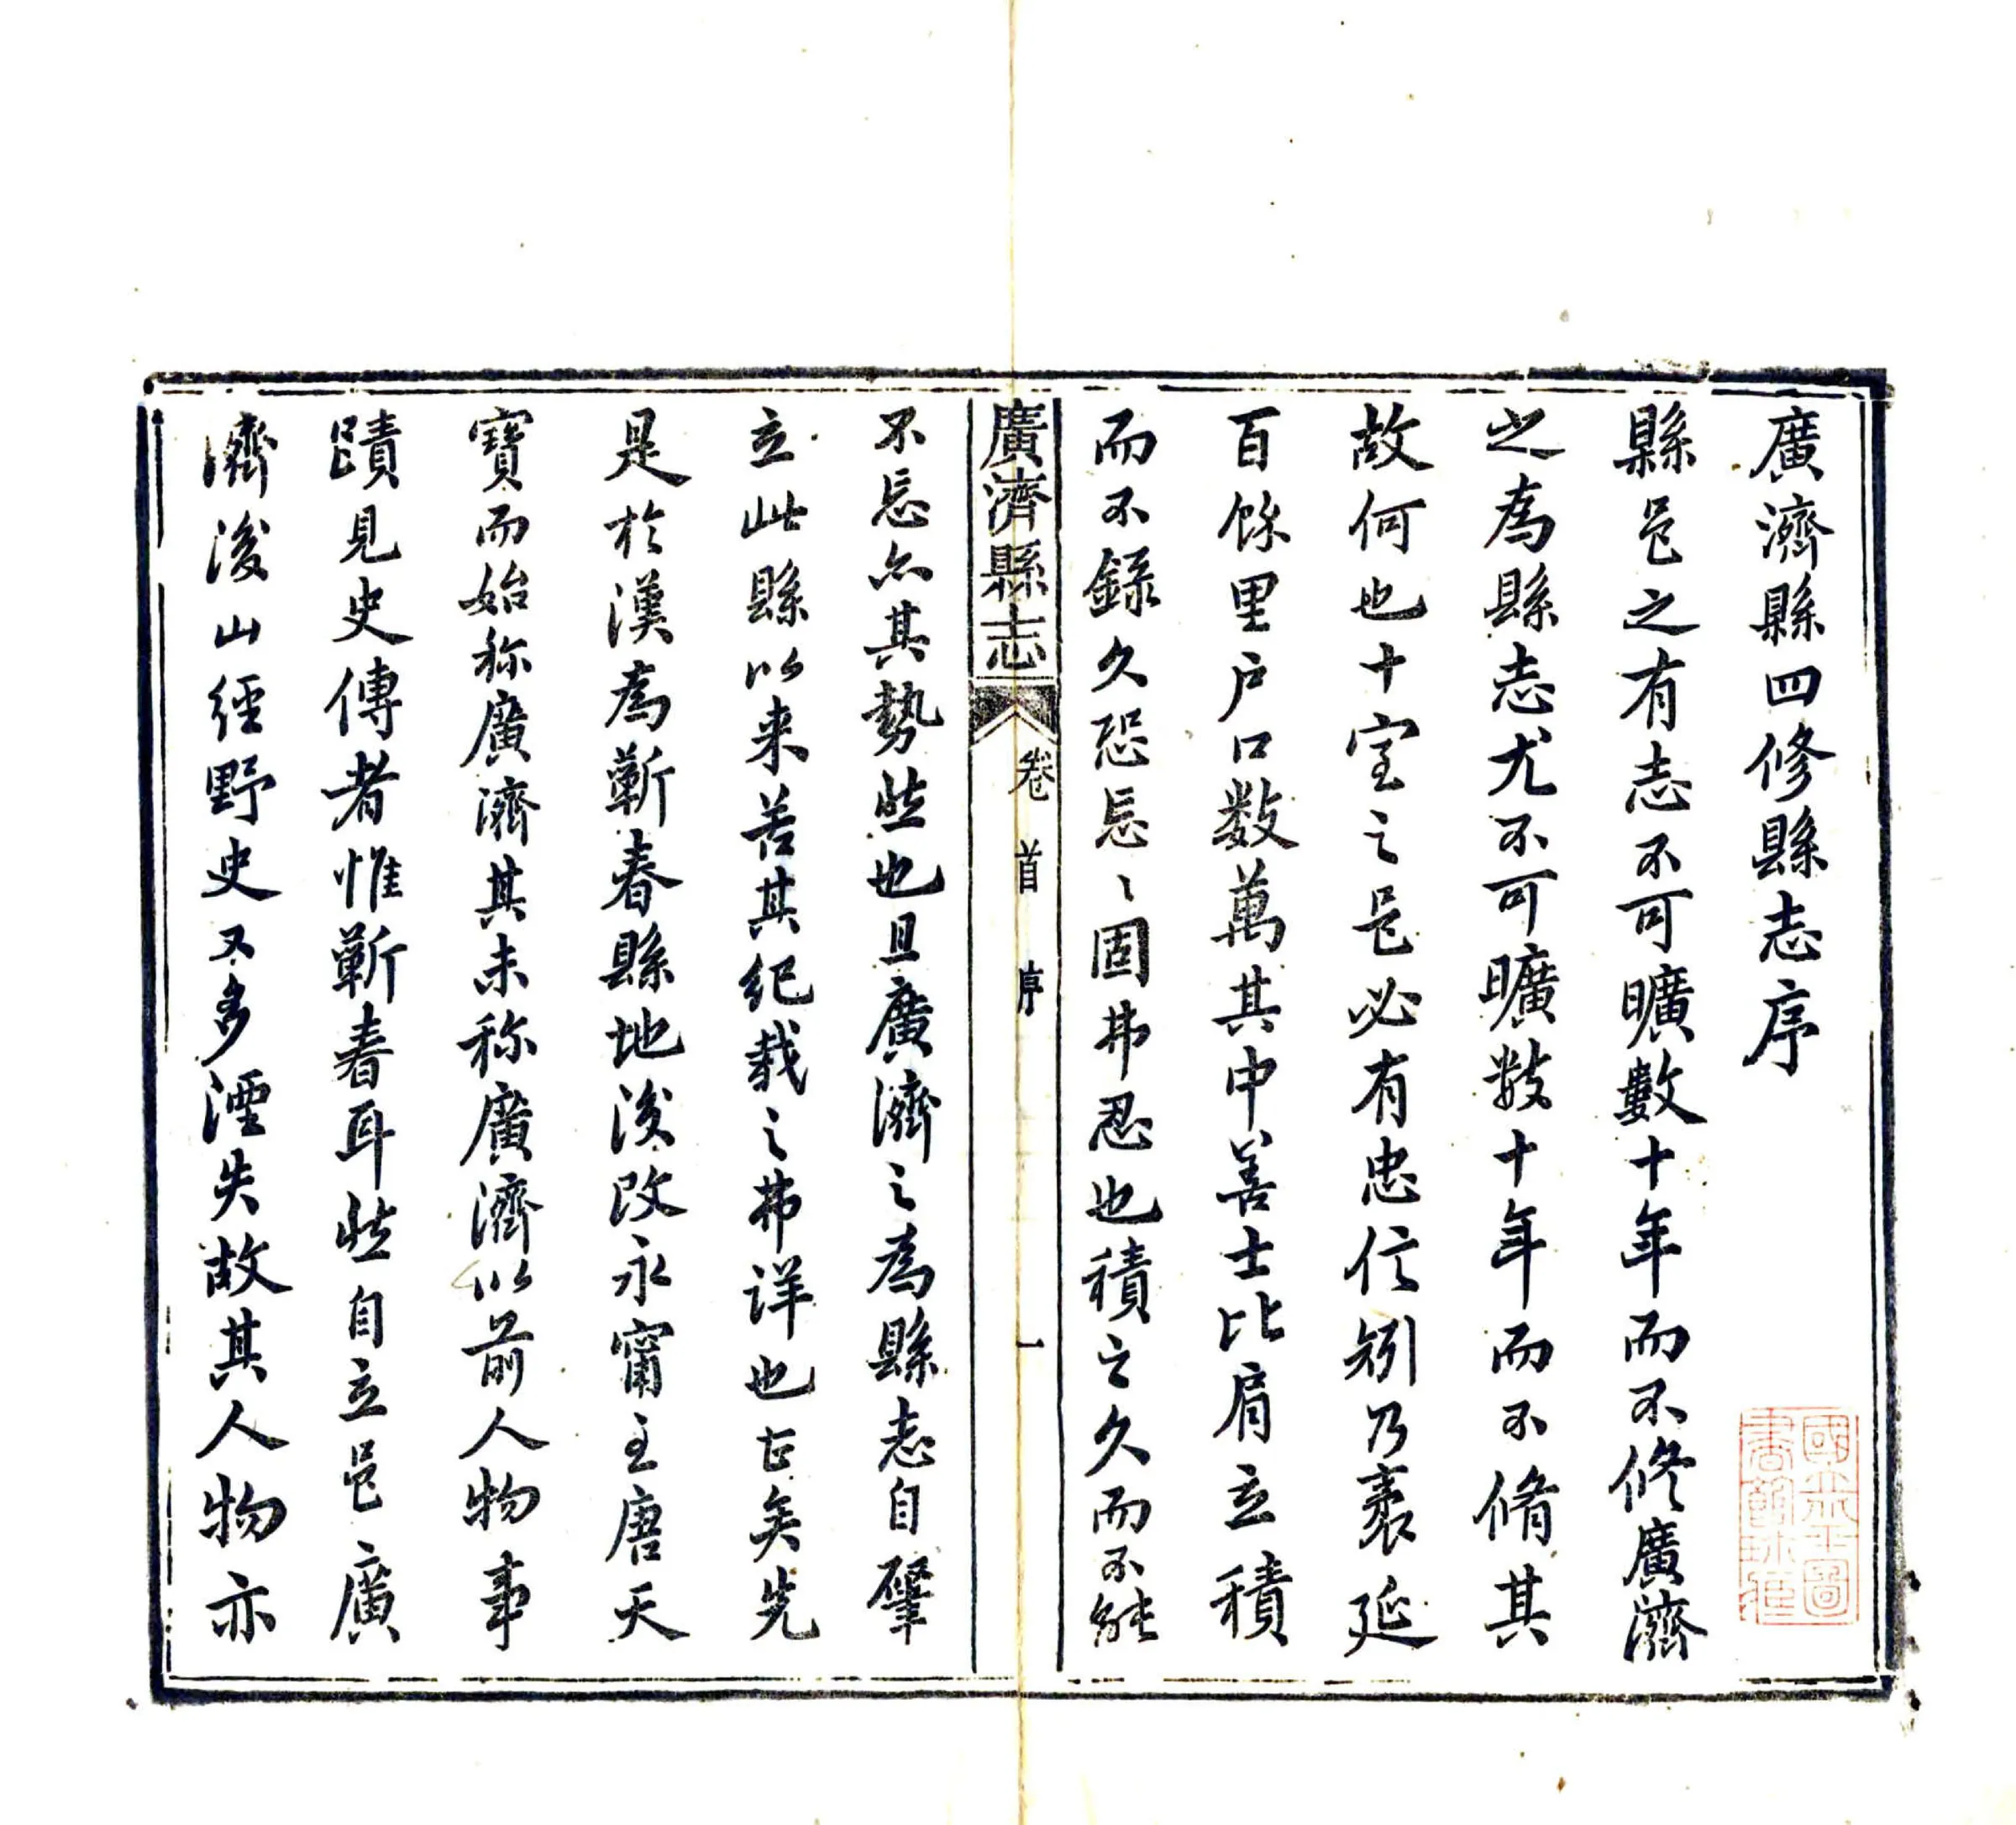 廣濟縣四修縣志序
縣邑之有志不可曠數十年而不修廣濟
之為縣志尤不可曠数十年而不脩其
故何也十室之邑必有忠信矧乃袤延
百餘里户口数萬其中善士比肩立積
而不錄久恐忘忘固弗忍也積之久而不能
廣濟縣志
卷首
序
一
不忘亦其勢然也且廣濟之為縣志自肇
立此縣以来苦其纪载之弗详也古矣先
是於漢為蘄春縣地後改永甯至唐天
寶而始称廣濟其未称廣濟以前人物事
蹟見史傳者惟蘄春耳然自立邑廣
濟後山經野史又多湮失故其人物亦